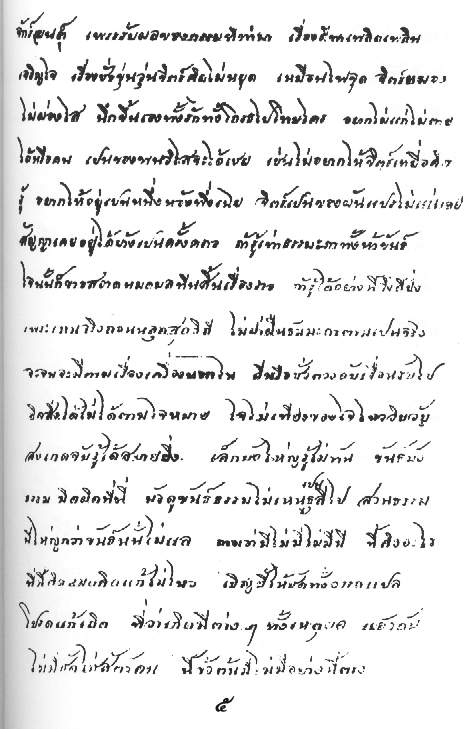 เพราะรับผลของกรรมที่ทำมา เรื่องรักเพลิดเพลิน
เจริญใจ เรื่องชังขุ่นวุ่นจิตร์คิดไม่หยุด เหมือนไฟจุด จิตร์หมอง
ไม่ผ่องใส นึกขึ้นเองทั้งรักทั้งโกรธไปโทษใคร อยากไม่แก่ไม่ตาย
ได้หรือคน เป็นของพ้นวิไสจะได้เชย เช่นไม่อยากให้จิตร์เที่ยวคิด
รู้ อยากให้อยู่เป็นหนึ่งหวังพึ่งเฉย จิตร์เป็นของผันแปรไม่แน่เลย
สัญญาเคยอยู่ได้บ้างเป็นครั้งคราว ถ้ารู้เท่าธรรมดาทั้งห้าขันธ์
ใจนั้นก็ขาวสอาดหมดมลทินสิ้นเรื่องราว ถ้ารู้ได้อย่างนี้จึงดียิ่ง
เพราะเหนจริงถอนหลุดสุดวิถี ไม่ฝ่าฝืนธรรมดาตามเป็นจริง
จะจนจะมีตามเรื่องเครื่องนอกใน ดีหรือชั่วต้องดับเลื่อนลับไป
ยึดสิ่งใดไม่ได้ตามใจหมาย ใจไม่เที่ยงของใจไหววิบวับ
สงเกตจับรู้ได้สบายยิ่ง เล็กบังใหญ่รู้ไม่ทัน ขันธ์บัง
ธรรม มิดผิดที่นี่ มัวดูขันธ์ธรรมไม่เหนเป็นธุลีไป ส่วนธรรม
มีใหญ่กว่าขันธ์นั้นไม่แล ถามว่ามีไม่มีไม่มีมี นี้คืออะไร
ทีนี้ติดหมดคิดแก้ไม่ไหว เชิญชี้ให้ชัดทั้งอรรถแปล
โปรดแก้เถิด ที่ว่าเกิดมีต่างๆ ทั้งเหตุผล แล้วดับ
ไม่มีชัดใช่สัตว์คน นี้ข้อต้นมีไม่มีอย่างนี้ตรง
๕